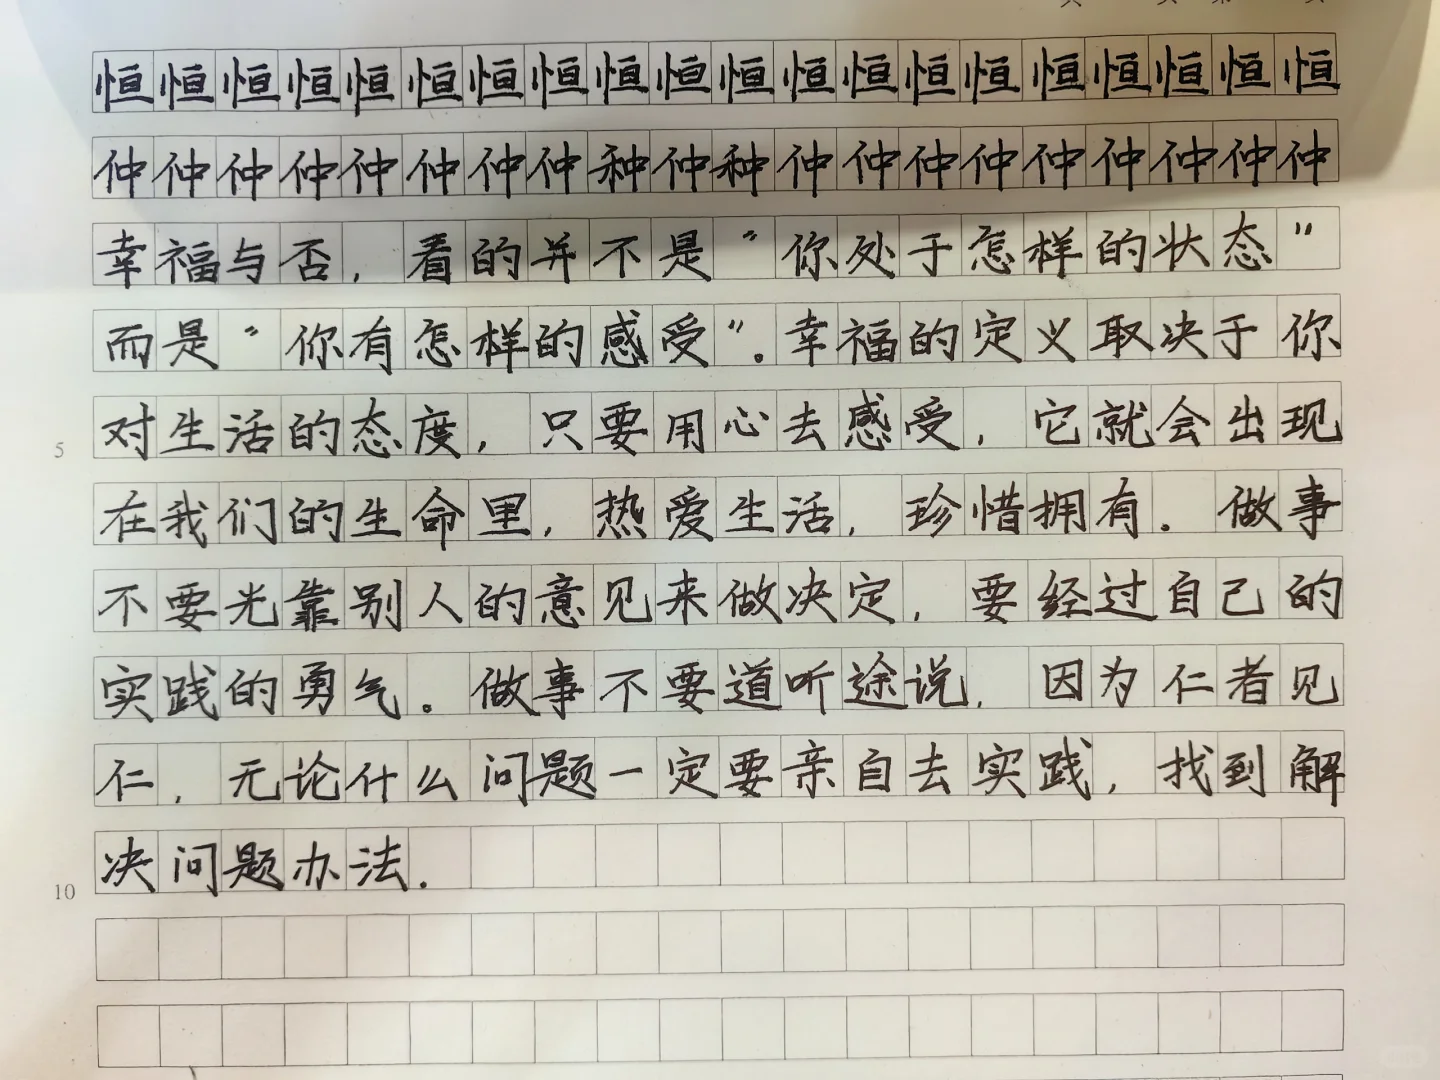 恒恒恒恒恒恒恒恒恒恒恒恒恒恒恒恒恒恒恒恒
仲仲仲仲仲仲仲仲种仲种仲仲仲仲仲仲仲仲仲
幸福与否，看的并不是“你处于怎样的状态”
而是“你有怎样的感受”。幸福的定义取决于你
5 对生活的态度，只要用心去感受，它就会出现
在我们的生命里，热爱生活，珍惜拥有。做事
不要光靠别人的意见来做决定，要经过自己的
实践的勇气。做事不要道听途说，因为仁者见
仁，无论什么问题一定要亲自去实践，找到解
10 决问题办法。